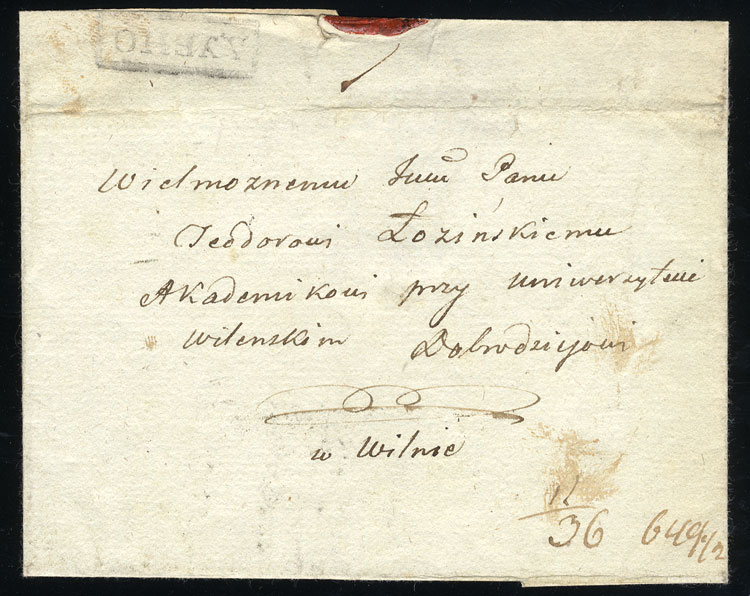 Wielmożnemu Jmu Panu
Teodorowi Łozińskiemu
Akademikowi przy Uniwerzytecie
Wilenskim Dobrodziejowi
w Wilnie
36 649 1/2